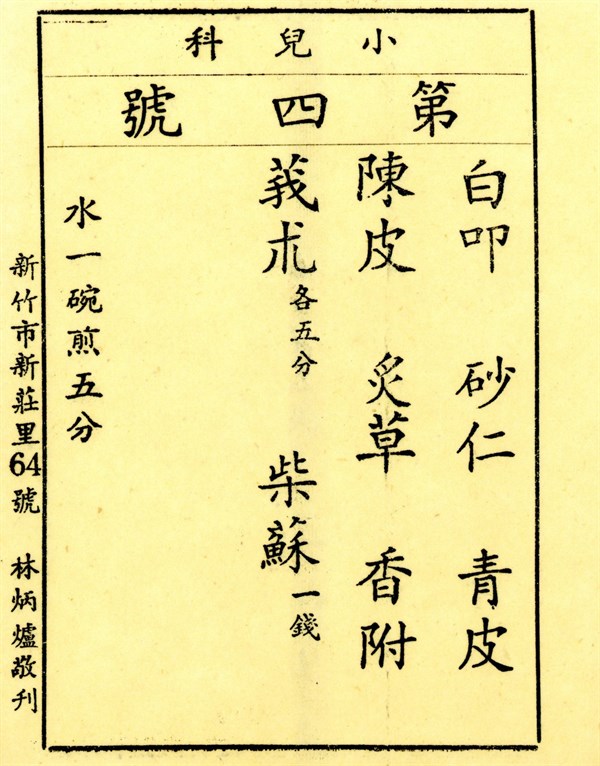 小兒科
第四號
白叩 砂仁 青皮
陳皮 炙草 香附
莪朮各五分 柴蘇一錢
水一碗煎五分
新竹市新莊里64號 林炳爐敬刊